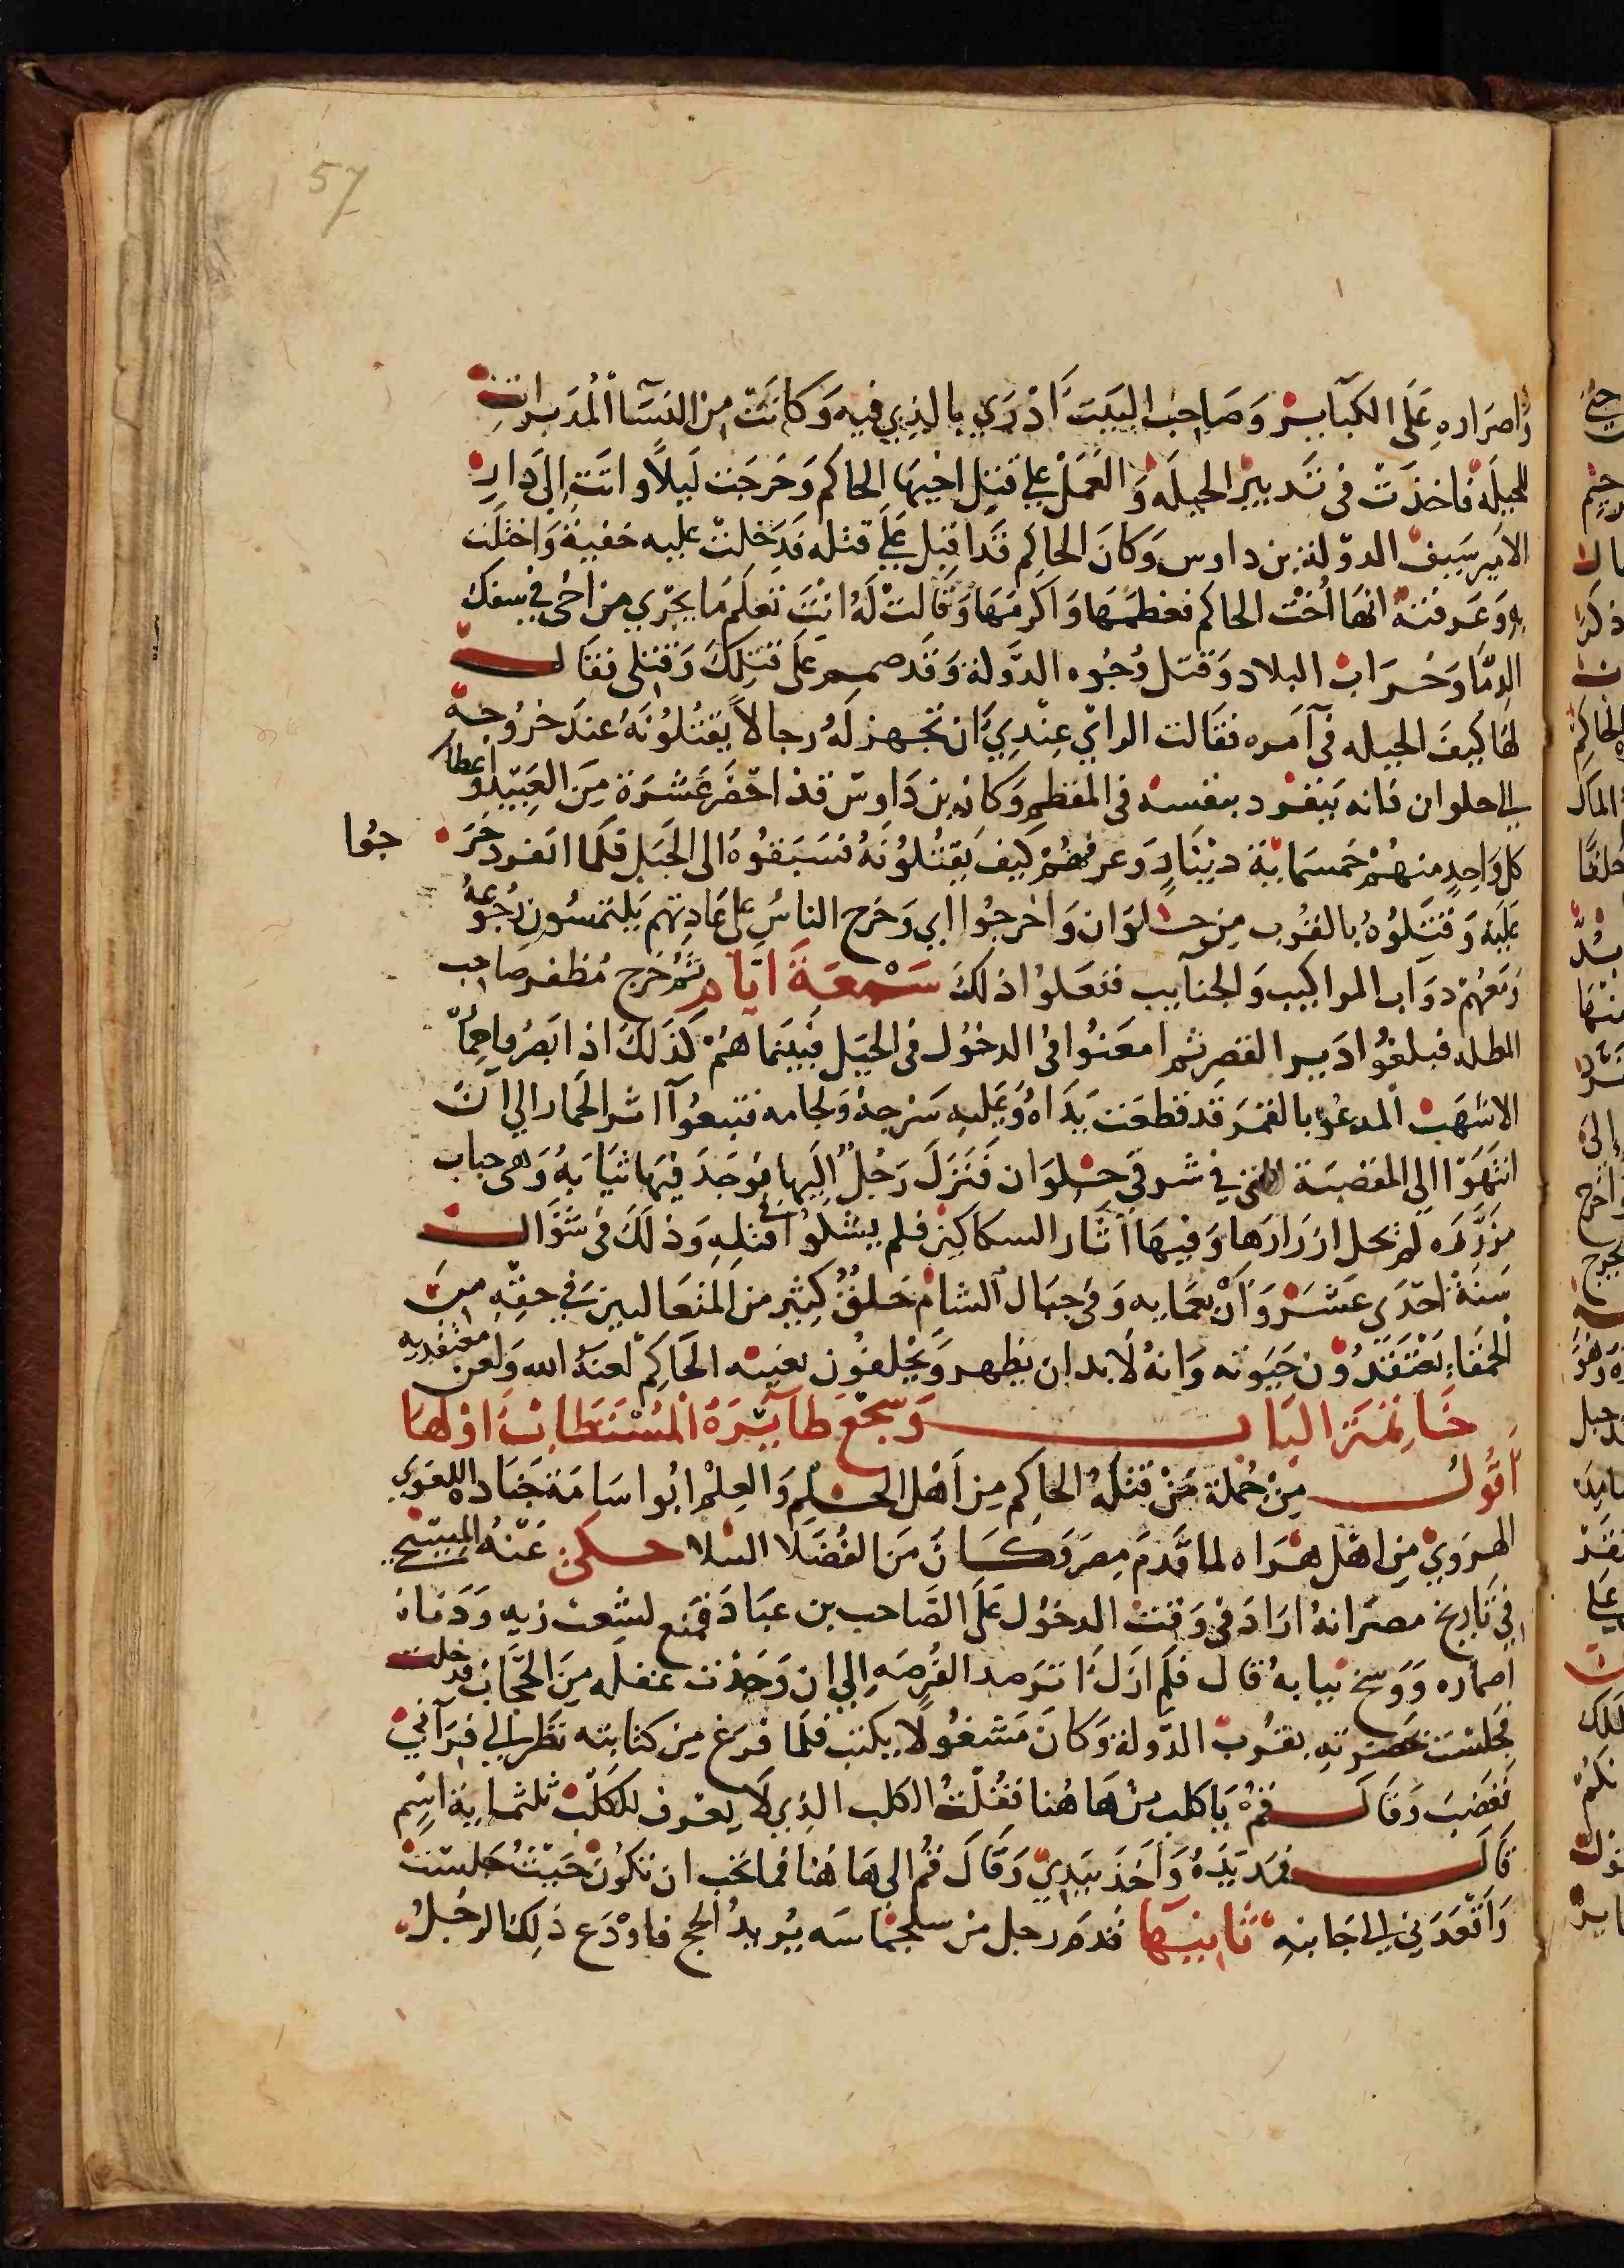 57
واصراره على الكبآير وصاحب البيت ادري بالذي فيه وكانت من النسآ المدبرات
للحيلة فاخذت في تدبير الحيله والعمل علي قتل اخيها الحاكم وخرجت ليلاً واتت الي دار
الامير سيف الدولة بن داوس وكان الحاكم قد اقبل علي قتله فدخلت عليه خفية واختلت
به وعرفته انها اُخت الحاكم فعظمها واكرمها وقالت له انت تعلم ما يجري من اخي في سفك
الدمآ وخراب البلاد وقتل وجوه الدولة وقد صمم على قتلك وقتلي فقال
لها كيف الحيله في آمره فقالت الراي عندي ان تجهز له رجالاً يقتلونه عند خروجه
الي حلوان فانه ينفرد بنفسه في المقطم وكان بن داوس قد احضر عشرة من العبيد واعطا
كل واحد منهم خمسماية دينار وعرفهم كيف يقتلونه فسبقوه الى الجبل فلما انفرد خر
جوا
عليه وقتلوه بالقرب من حلوان واخرجوا ابي وخرج الناس على عادتهم يلتمسون رجوعه
ومعهم دواب المواكب والجنايب ففعلوا ذلك سبعة ايام ثم خرج مظفر صاحب
المظله فبلغوا دير القصر ثم امعنوا في الدخول في الجبل فبينما هم كذلك اذ ابصروا حماره
الاشهب المدعو بالقمر قد قطعت يداه وعليه سرجه ولجامه فتبعوآ اثر الحمار الي ان
انتهوا الي المقصبة التي في شرقي حلوان فنزل رجل اليها فوجد فيها ثيابه وهي جباب
مزرره لم تحل ازرارها وفيها اثار السكاكين فلم يشكوا في قتله وذلك في شوال
سنة احدي عشر واربعمايه وفي جبال الشام خلق كثير من المتغالين في حقه من
الحمقاء يعتقدون حيوته وانه لا بد ان يظهر ويحلفون بغيبه الحاكم لعنه الله ولعن معتقديه
خاتمة الباب وسجع طآيره المستطاب اولها
اقول من جملة من قتله الحاكم من اهل الحلم والعلم ابوا سامة جناده اللغوي
الهروي من اهل هراه لما قدم مصر وكان من الفضلا النبلا حكى عنه المسبحي
في تاريخ مصر انه اراد في وقت الدخول على الصاحب بن عباد فمنع لشعث زيه ودناة
اطماره ووسخ ثيابه قال فلم ازل اترصد الفرصه الي ان وجدت غفله من الحجاب فدخلت
فجلست بحضرته بقرب الدولة وكان مشغولاً يكتب فلما فرغ من كتابته نظر الي فرآني
فغضب وقال قم يا كلب من ها هنا فقلت الكلب الذي لا يعرف للكلب ثلثماية اسم
قال فمد يده واخذ بيدي وقال قم الي ها هنا فما يجب ان تكون حيث جلست
واقعدني الي جانبه ثانيها قدم رجل من سلجماسه يريد الحج فاودع ذلك الرجل